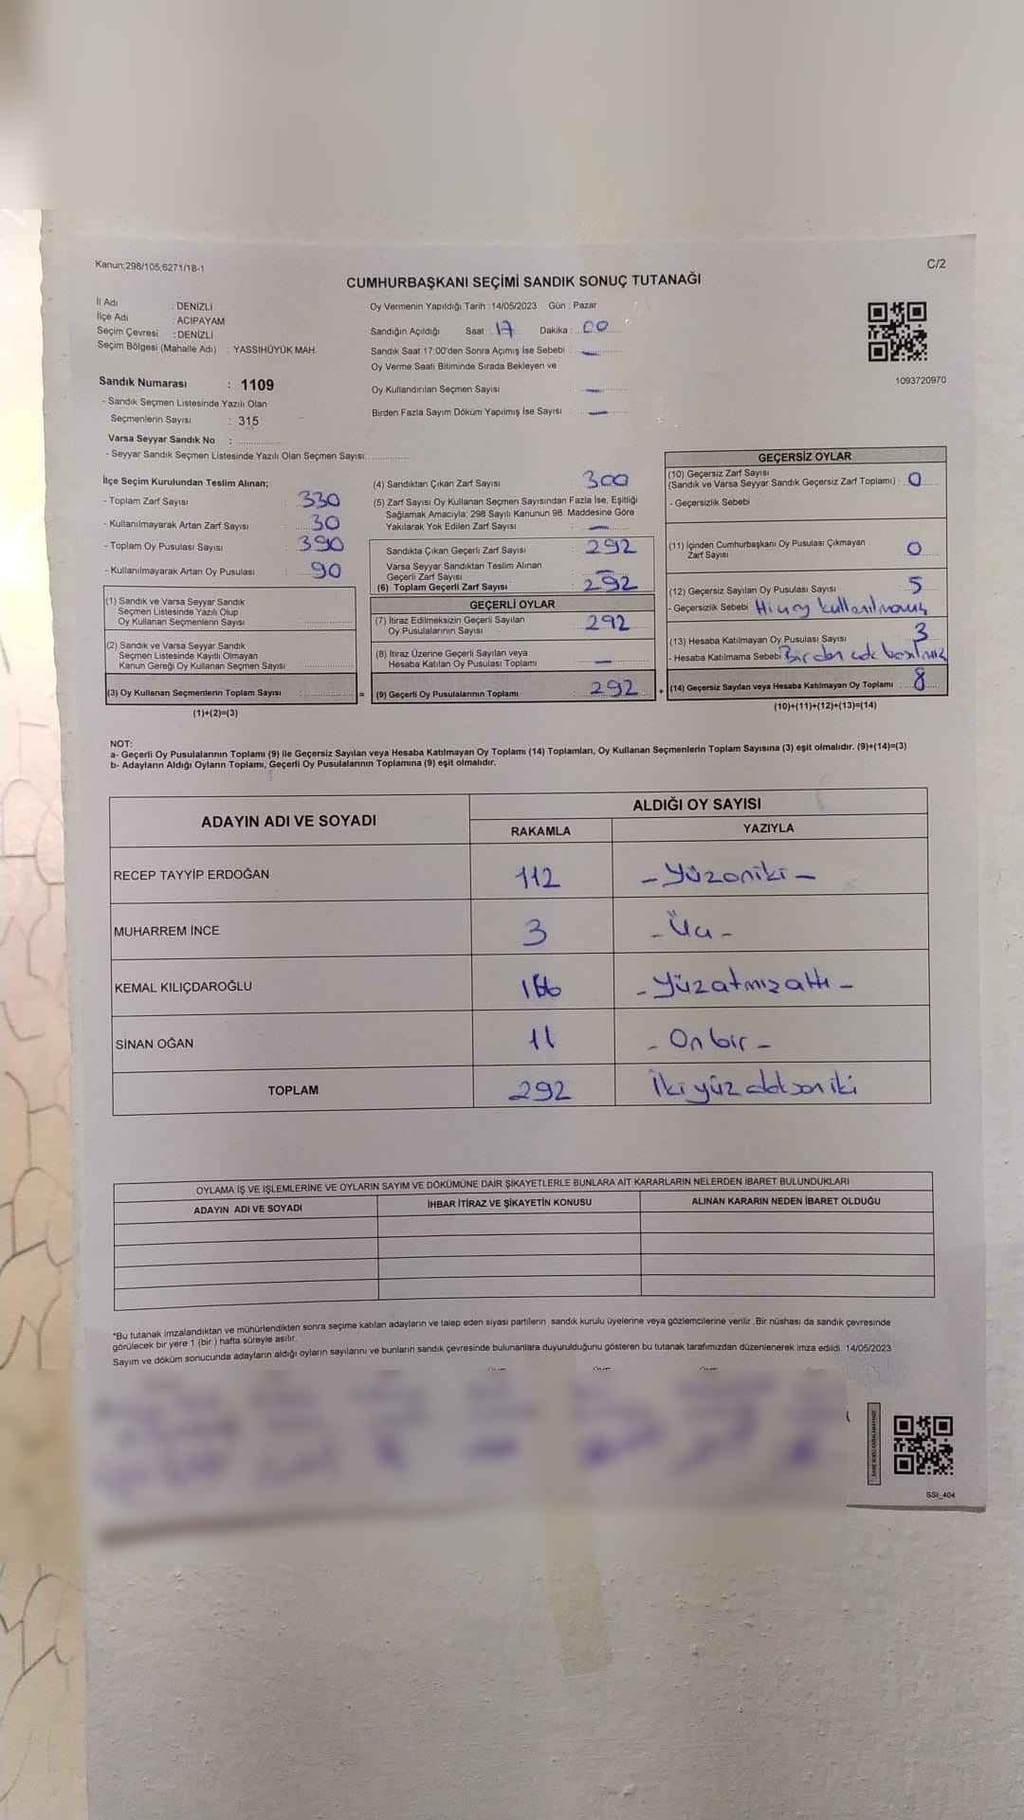 Kanun:298/105;6271/18-1
C/2
CUMHURBAŞKANI SEÇİMİ SANDIK SONUÇ TUTANAĞI
İl Adı : DENİZLİ
İlçe Adı : ACIPAYAM
Seçim Çevresi : DENİZLİ
Seçim Bölgesi (Mahalle Adı) : YASSIHÜYÜK MAH.
Sandık Numarası : 1109
- Sandık Seçmen Listesinde Yazılı Olan
Seçmenlerin Sayısı : 315
Varsa Seyyar Sandık No :
- Seyyar Sandık Seçmen Listesinde Yazılı Olan Seçmen Sayısı
Oy Vermenin Yapıldığı Tarih : 14/05/2023 Gün : Pazar
Sandığın Açıldığı Saat : 17 Dakika : 00
Sandık Saat 17:00'den Sonra Açmış İse Sebebi : —
Oy Verme Saati Bitiminde Sırada Bekleyen ve
Oy Kullandırılan Seçmen Sayısı : —
Birden Fazla Sayım Döküm Yapılmış İse Sayısı : —
1093720970
İlçe Seçim Kurulundan Teslim Alınan;
- Toplam Zarf Sayısı : 330
- Kullanılmayarak Artan Zarf Sayısı : 30
- Toplam Oy Pusulası Sayısı : 390
- Kullanılmayarak Artan Oy Pusulası : 90
(1) Sandık ve Varsa Seyyar Sandık
Seçmen Listesinde Yazılı Olup
Oy Kullanan Seçmenlerin Sayısı
(2) Sandık ve Varsa Seyyar Sandık
Seçmen Listesinde Kayıtlı Olmayan
Kanun Gereği Oy Kullanan Seçmen Sayısı
(3) Oy Kullanan Seçmenlerin Toplam Sayısı : =
(1)+(2)=(3)
(4) Sandıktan Çıkan Zarf Sayısı : 300
(5) Zarf Sayısı Oy Kullanan Seçmen Sayısından Fazla İse, Eşitliği
Sağlamak Amacıyla; 298 Sayılı Kanunun 98. Maddesine Göre
Yakılarak Yok Edilen Zarf Sayısı : —
Sandıkta Çıkan Geçerli Zarf Sayısı : 292
Varsa Seyyar Sandıktan Teslim Alınan
Geçerli Zarf Sayısı : —
(6) Toplam Geçerli Zarf Sayısı : 292
GEÇERLİ OYLAR
(7) İtiraz Edilmeksizin Geçerli Sayılan
Oy Pusulalarının Sayısı : 292
(8) İtiraz Üzerine Geçerli Sayılan veya
Hesaba Katılan Oy Pusulası Toplamı : —
(9) Geçerli Oy Pusulalarının Toplamı : 292 +
GEÇERSİZ OYLAR
(10) Geçersiz Zarf Sayısı
(Sandık ve Varsa Seyyar Sandık Geçersiz Zarf Toplamı) : 0
- Geçersizlik Sebebi
(11) İçinden Cumhurbaşkanı Oy Pusulası Çıkmayan
Zarf Sayısı : 0
(12) Geçersiz Sayılan Oy Pusulası Sayısı : 5
- Geçersizlik Sebebi : kullanılmamış
(13) Hesaba Katılmayan Oy Pusulası Sayısı : 3
- Hesaba Katılmama Sebebi : Birden çok basılmış
(14) Geçersiz Sayılan veya Hesaba Katılmayan Oy Toplamı : 8
(10)+(11)+(12)+(13)=(14)
NOT:
a- Geçerli Oy Pusulalarının Toplamı (9) ile Geçersiz Sayılan veya Hesaba Katılmayan Oy Toplamı (14) Toplamları, Oy Kullanan Seçmenlerin Toplam Sayısına (3) eşit olmalıdır. (9)+(14)=(3)
b- Adayların Aldığı Oyların Toplamı, Geçerli Oy Pusulalarının Toplamına (9) eşit olmalıdır.
ADAYIN ADI VE SOYADI
ALDIĞI OY SAYISI
RAKAMLA YAZIYLA
RECEP TAYYİP ERDOĞAN 112 - Yüzoniki -
MUHARREM İNCE 3 - Üç -
KEMAL KILIÇDAROĞLU 166 - Yüzatmızaltı -
SİNAN OĞAN 11 - On bir -
TOPLAM 292 İki yüz doksan iki
OYLAMA İŞ VE İŞLEMLERİNE VE OYLARIN SAYIM VE DÖKÜMÜNE DAİR ŞİKAYETLERLE BUNLARA AİT KARARLARIN NELERDEN İBARET BULUNDUKLARI
ADAYIN ADI VE SOYADI İHBAR İTİRAZ VE ŞİKAYETİN KONUSU ALINAN KARARIN NEDEN İBARET OLDUĞU
*Bu tutanak imzalandıktan ve mühürlendikten sonra seçime katılan adayların ve talep eden siyasi partilerin sandık kurulu üyelerine veya gözlemcilerine verilir. Bir nüshası da sandık çevresinde
görülecek bir yere 1 (bir ) hafta süreyle asılır.
Sayım ve döküm sonucunda adayların aldığı oyların sayılarını ve bunların sandık çevresinde bulunanlara duyurulduğunu gösteren bu tutanak tarafımızdan düzenlenerek imza edildi. 14/05/2023
SSI_404